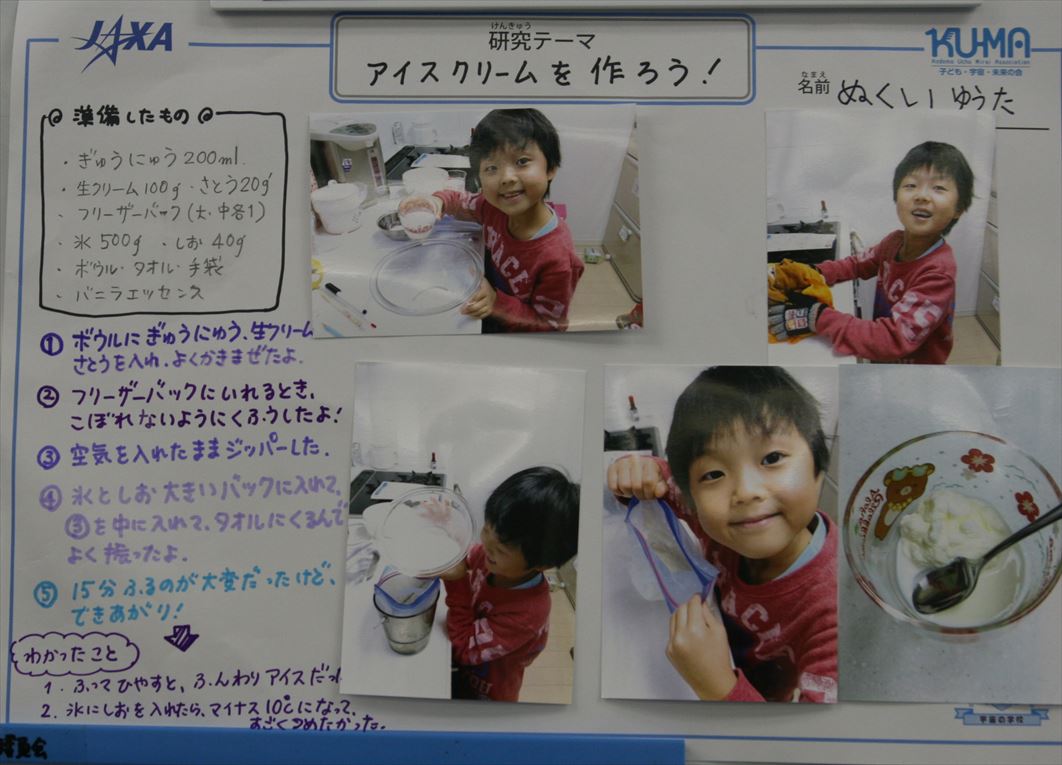 JAXA
けんきゅう
研究テーマ
アイスクリームを作ろう!
KU-MA
Kodomo Uchu Mirai Association
子ども・宇宙・未来の会
なまえ
名前 ぬくしいゆうた
準備したもの
・ぎゅうにゅう200ml.
・生クリーム100g・さとう20g
・フリーザーバック(大・中各1)
・氷500g ・しお40g
・ボウル・タオル・手袋
・バニラエッセンス
① ボウルにぎゅうにゅう、生クリーム
さとうを入れ、よくかきまぜたよ.
② フリーザーバックにいれるとき、
こぼれないようにくふうしたよ!
③ 空気を入れたままジッパーした.
④ 氷としお大きいバックに入れて、
③を中に入れて、タオルにくるんで
よく振ったよ.
⑤ 15分ふるのが大変だったけど、
できあがり!
わかったこと
1. ふってひやすと、ふんわりアイスだっ
2. 氷にしおを入れたら、マイナス10℃になって、
すごくつめたかった.
宇宙の学校
員会